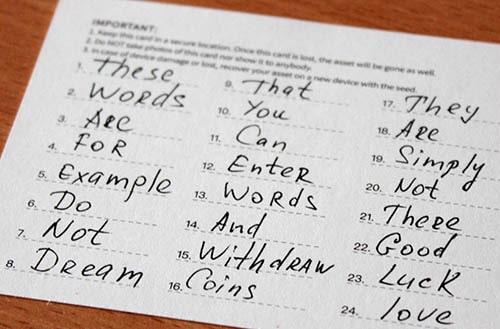 IMPORTANT:
1. Keep this card in a secure location. Once this card is lost, the asset will be gone as well.
2. Do NOT take photos of this card nor show it to anybody.
3. In case of device damage or lost, recover your asset on a new device with the seed.
1. These
2. Words
3. Are
4. For
5. Example
6. Do
7. Not
8. Dream
9. That
10. You
11. Can
12. Enter
13. Words
14. And
15. Withdraw
16. Coins
17. They
18. Are
19. Simply
20. Not
21. There
22. Good
23. Luck
24. love